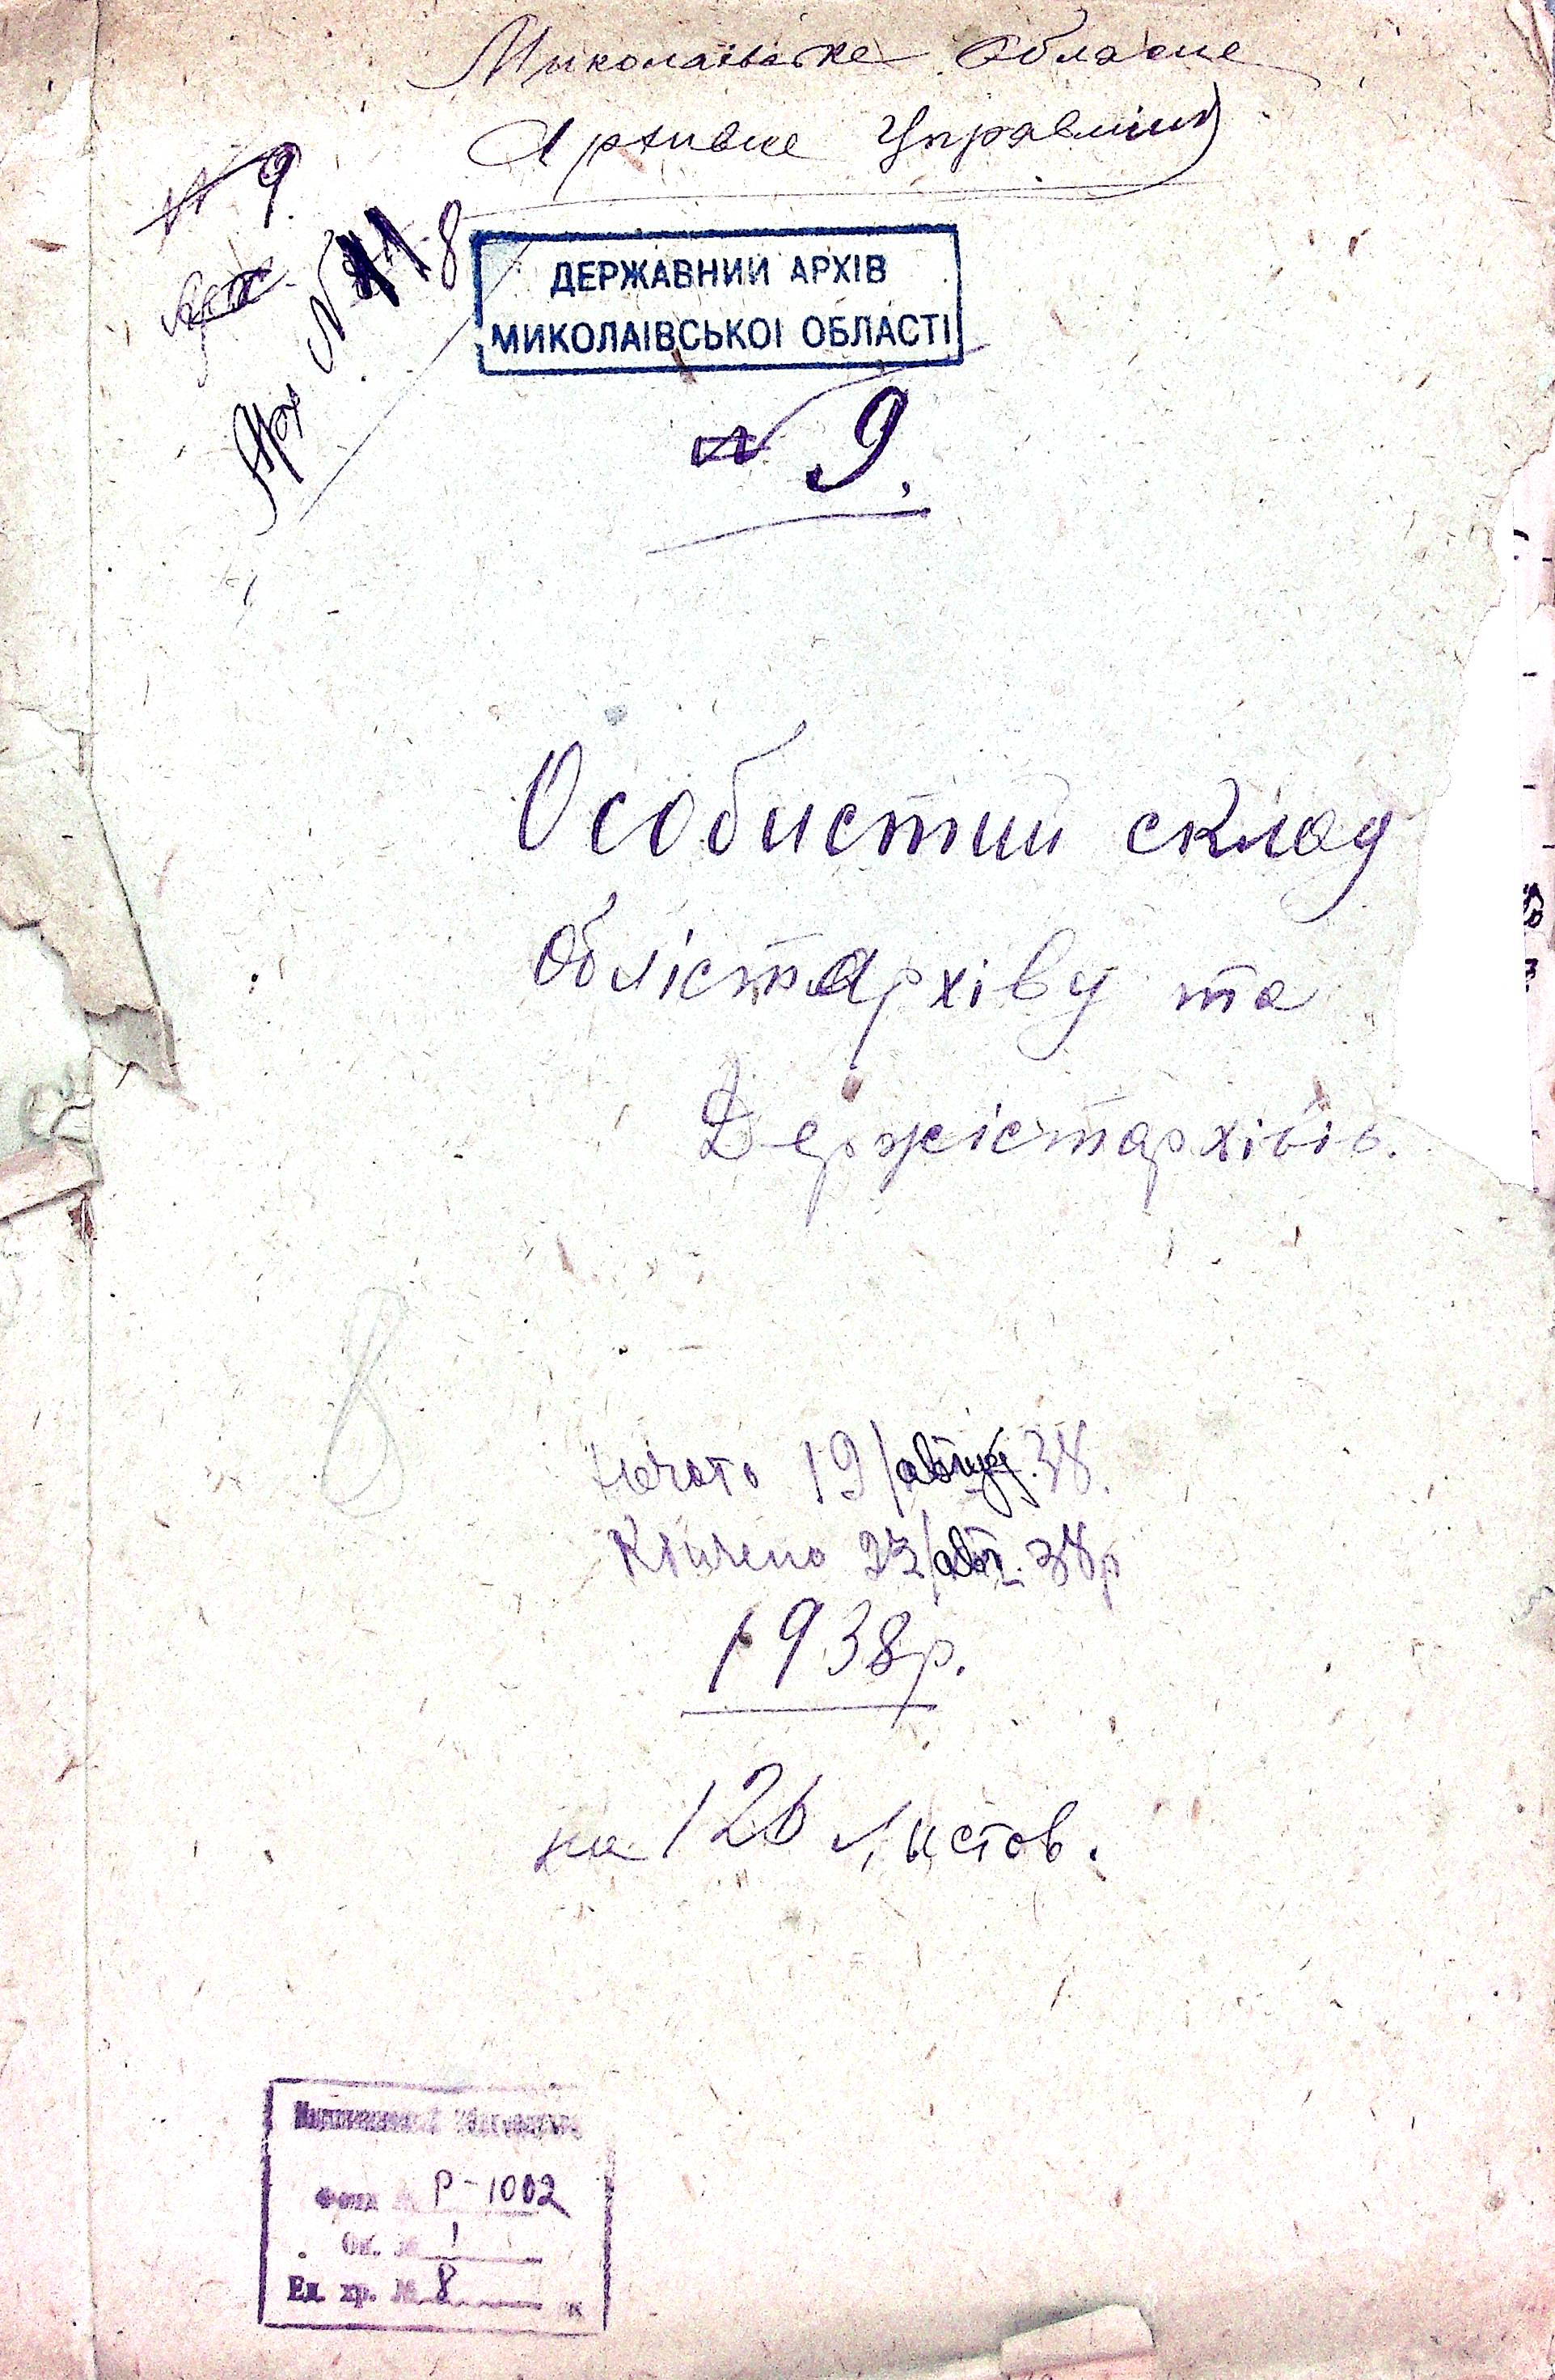 Миколаївське Обласне
Архивне Управління
№ 9.
Арх №118
ДЕРЖАВНИЙ АРХІВ
МИКОЛАЇВСЬКОЇ ОБЛАСТІ
№ 9.
Особистий склад
Облістархіву та
Держістархівів.
8
Начато 19/августа 38.
Кінчено 22/авг. 38р
1938р.
на 126 листов.
Фонд № Р-1002
Оп. № 1
Ед. хр. № 8